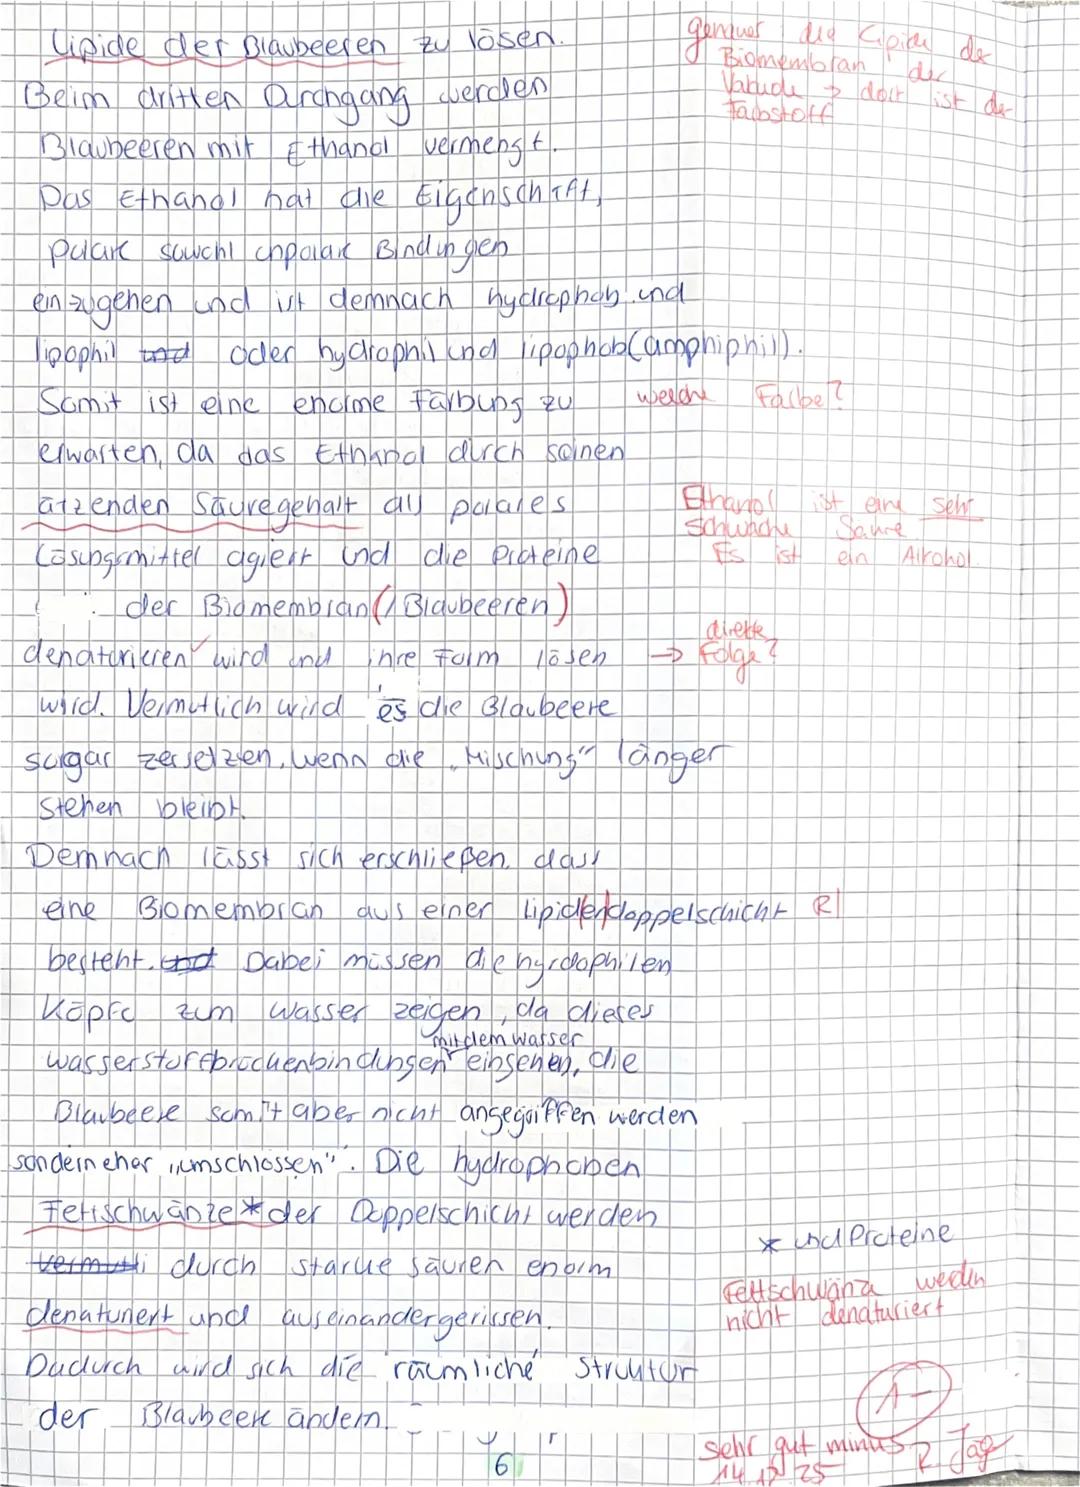 Lipide der Blaubeeren zu lösen.
genauer die Lipide der
Biomembran der
Vakuole → dort ist der
Farbstoff
Beim dritten Durchgang werden
Blaubeeren mit Ethanol vermengt.
Das Ethanol hat die Eigenschaft,
polare sowohl unpolare Bindungen
einzugehen und ist demnach hydrophob und
lipophil und oder hydrophil und lipophob (amphiphil).
Somit ist eine enorme Färbung zu
welche Farbe?
erwarten, da das Ethanol durch seinen
ätzenden Säuregehalt als polares
Ethanol ist eine sehr
schwache Säure
Es ist ein Alkohol.
Lösungsmittel agiert und die Proteine
der Biomembran (/Blaubeeren)
denaturieren wird und ihre Form lösen
→ direkte
Folge?
wird. Vermutlich wird es die Blaubeere
sogar zersetzen, wenn die „Mischung" länger
stehen bleibt.
Demnach lässt sich erschließen, dass
eine Biomembran aus einer Lipidendoppelschicht R|
besteht. und Dabei müssen die hyrdophilen
Köpfe zum Wasser zeigen, da dieses
mit dem Wasser
wasserstoffbrückenbindungen einsehen, die
Blaubeere somit aber nicht angegriffen werden
sondern eher „umschlossen". Die hydrophoben
Fettschwänze* der Doppelschicht werden
* und Proteine
vermutli durch starke säuren enorm
denaturiert und auseinandergerissen.
Fettschwänze werden
nicht denaturiert
Dadurch wird sich die räumliche Struktur
der Blaubeere ändern.
1-
sehr gut minus
14 12 25
R. Jäg
6